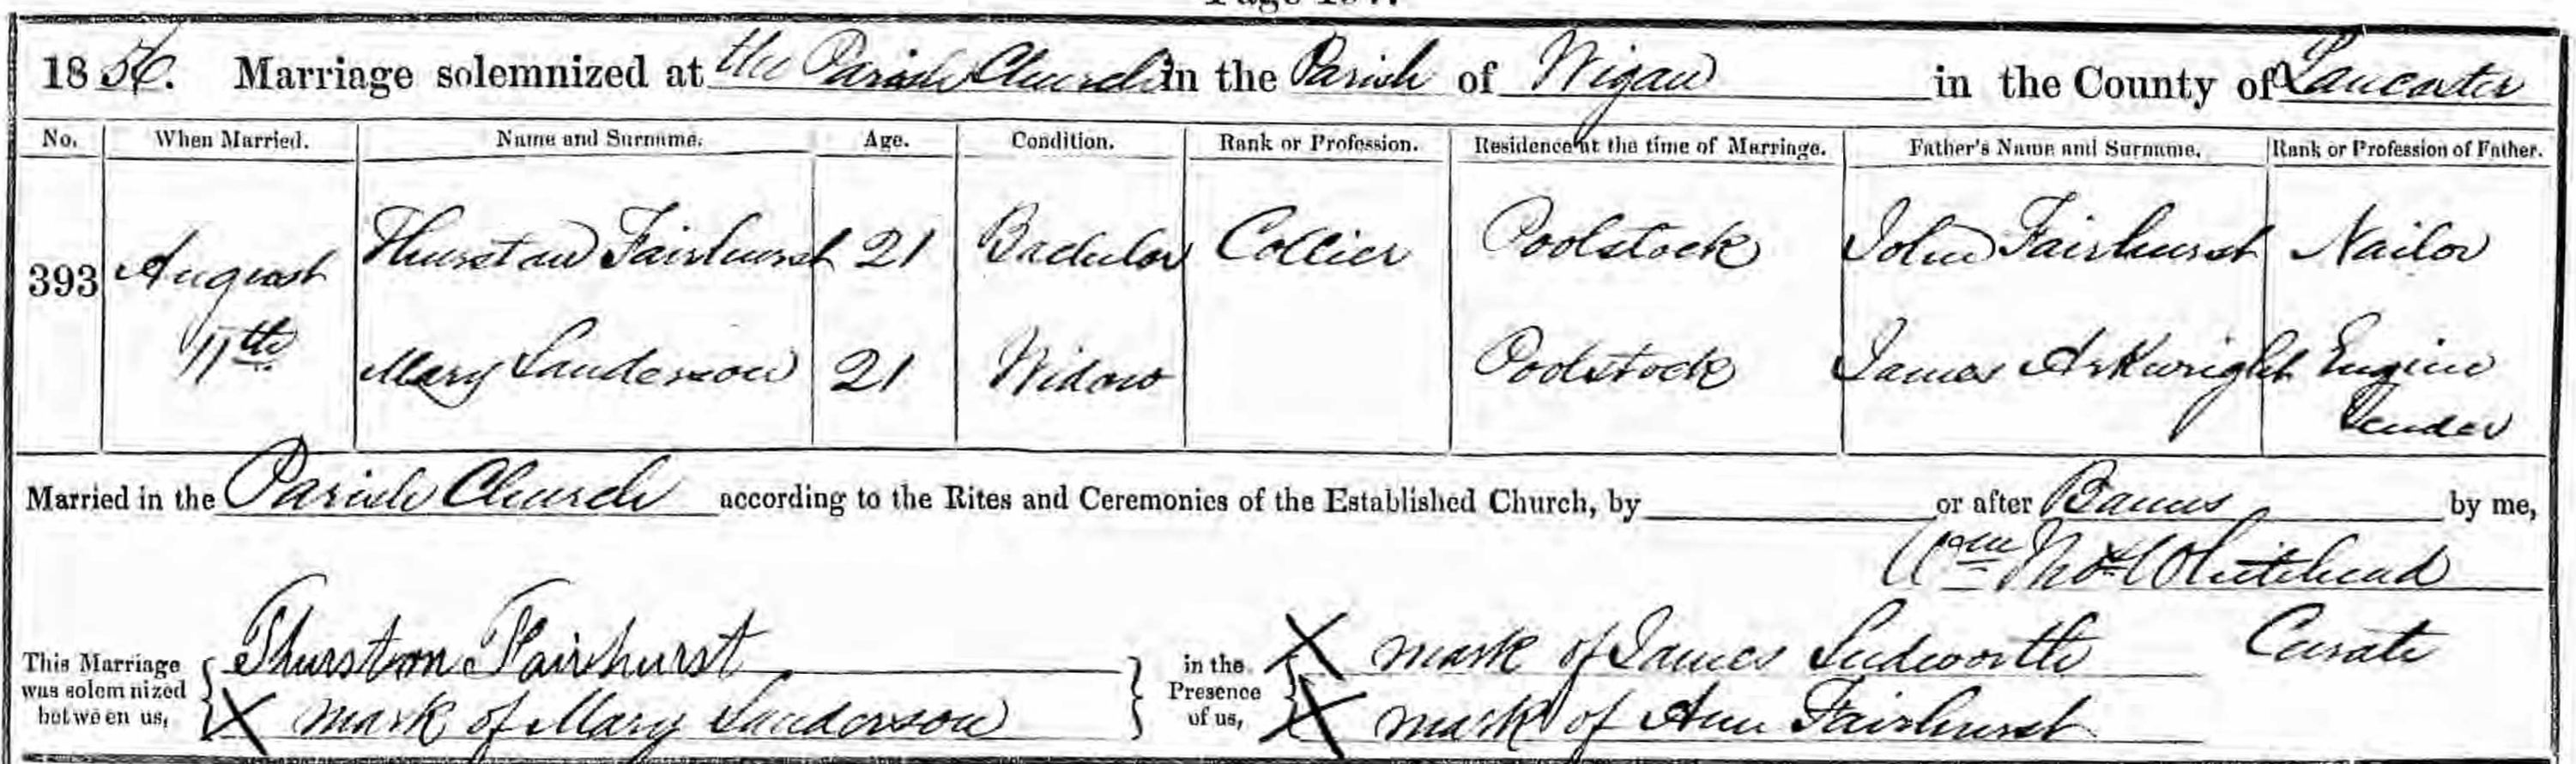 1856. Marriage solemnized at the Parish Church in the Parish of Wigan in the County of Lancaster
No. When Married. Name and Surname. Age. Condition. Rank or Profession. Residence at the time of Marriage. Father's Name and Surname. Rank or Profession of Father.
393 August 11th Thurstan Fairhurst 21 Bachelor Collier Poolstock John Fairhurst Nailor
Mary Sanderson 21 Widow Poolstock James Arkwright Engine Tender
Married in the Parish Church according to the Rites and Ceremonies of the Established Church, by or after Banns by me,
Whitehead
Curate
This Marriage was solemnized between us,
Thurston Fairhurst
X mark of Mary Sanderson
in the Presence of us,
X mark of James Ludworth
X mark of Ann Fairhurst